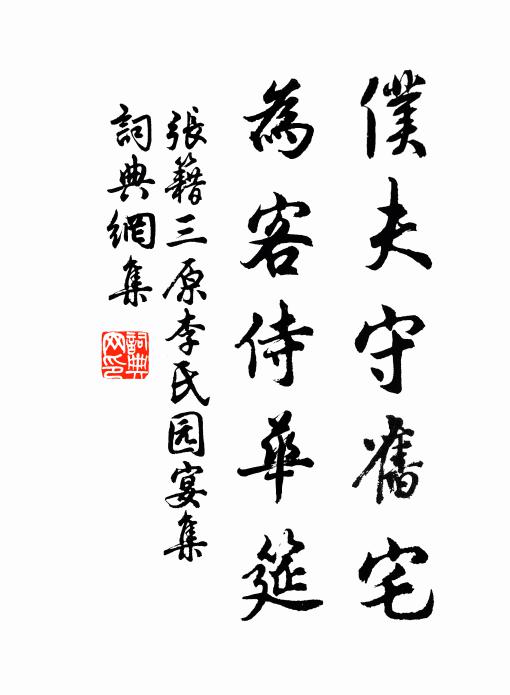 僕夫守舊宅
為客侍華筵
張籍三原李氏园宴集
詞典網集
詞典网印